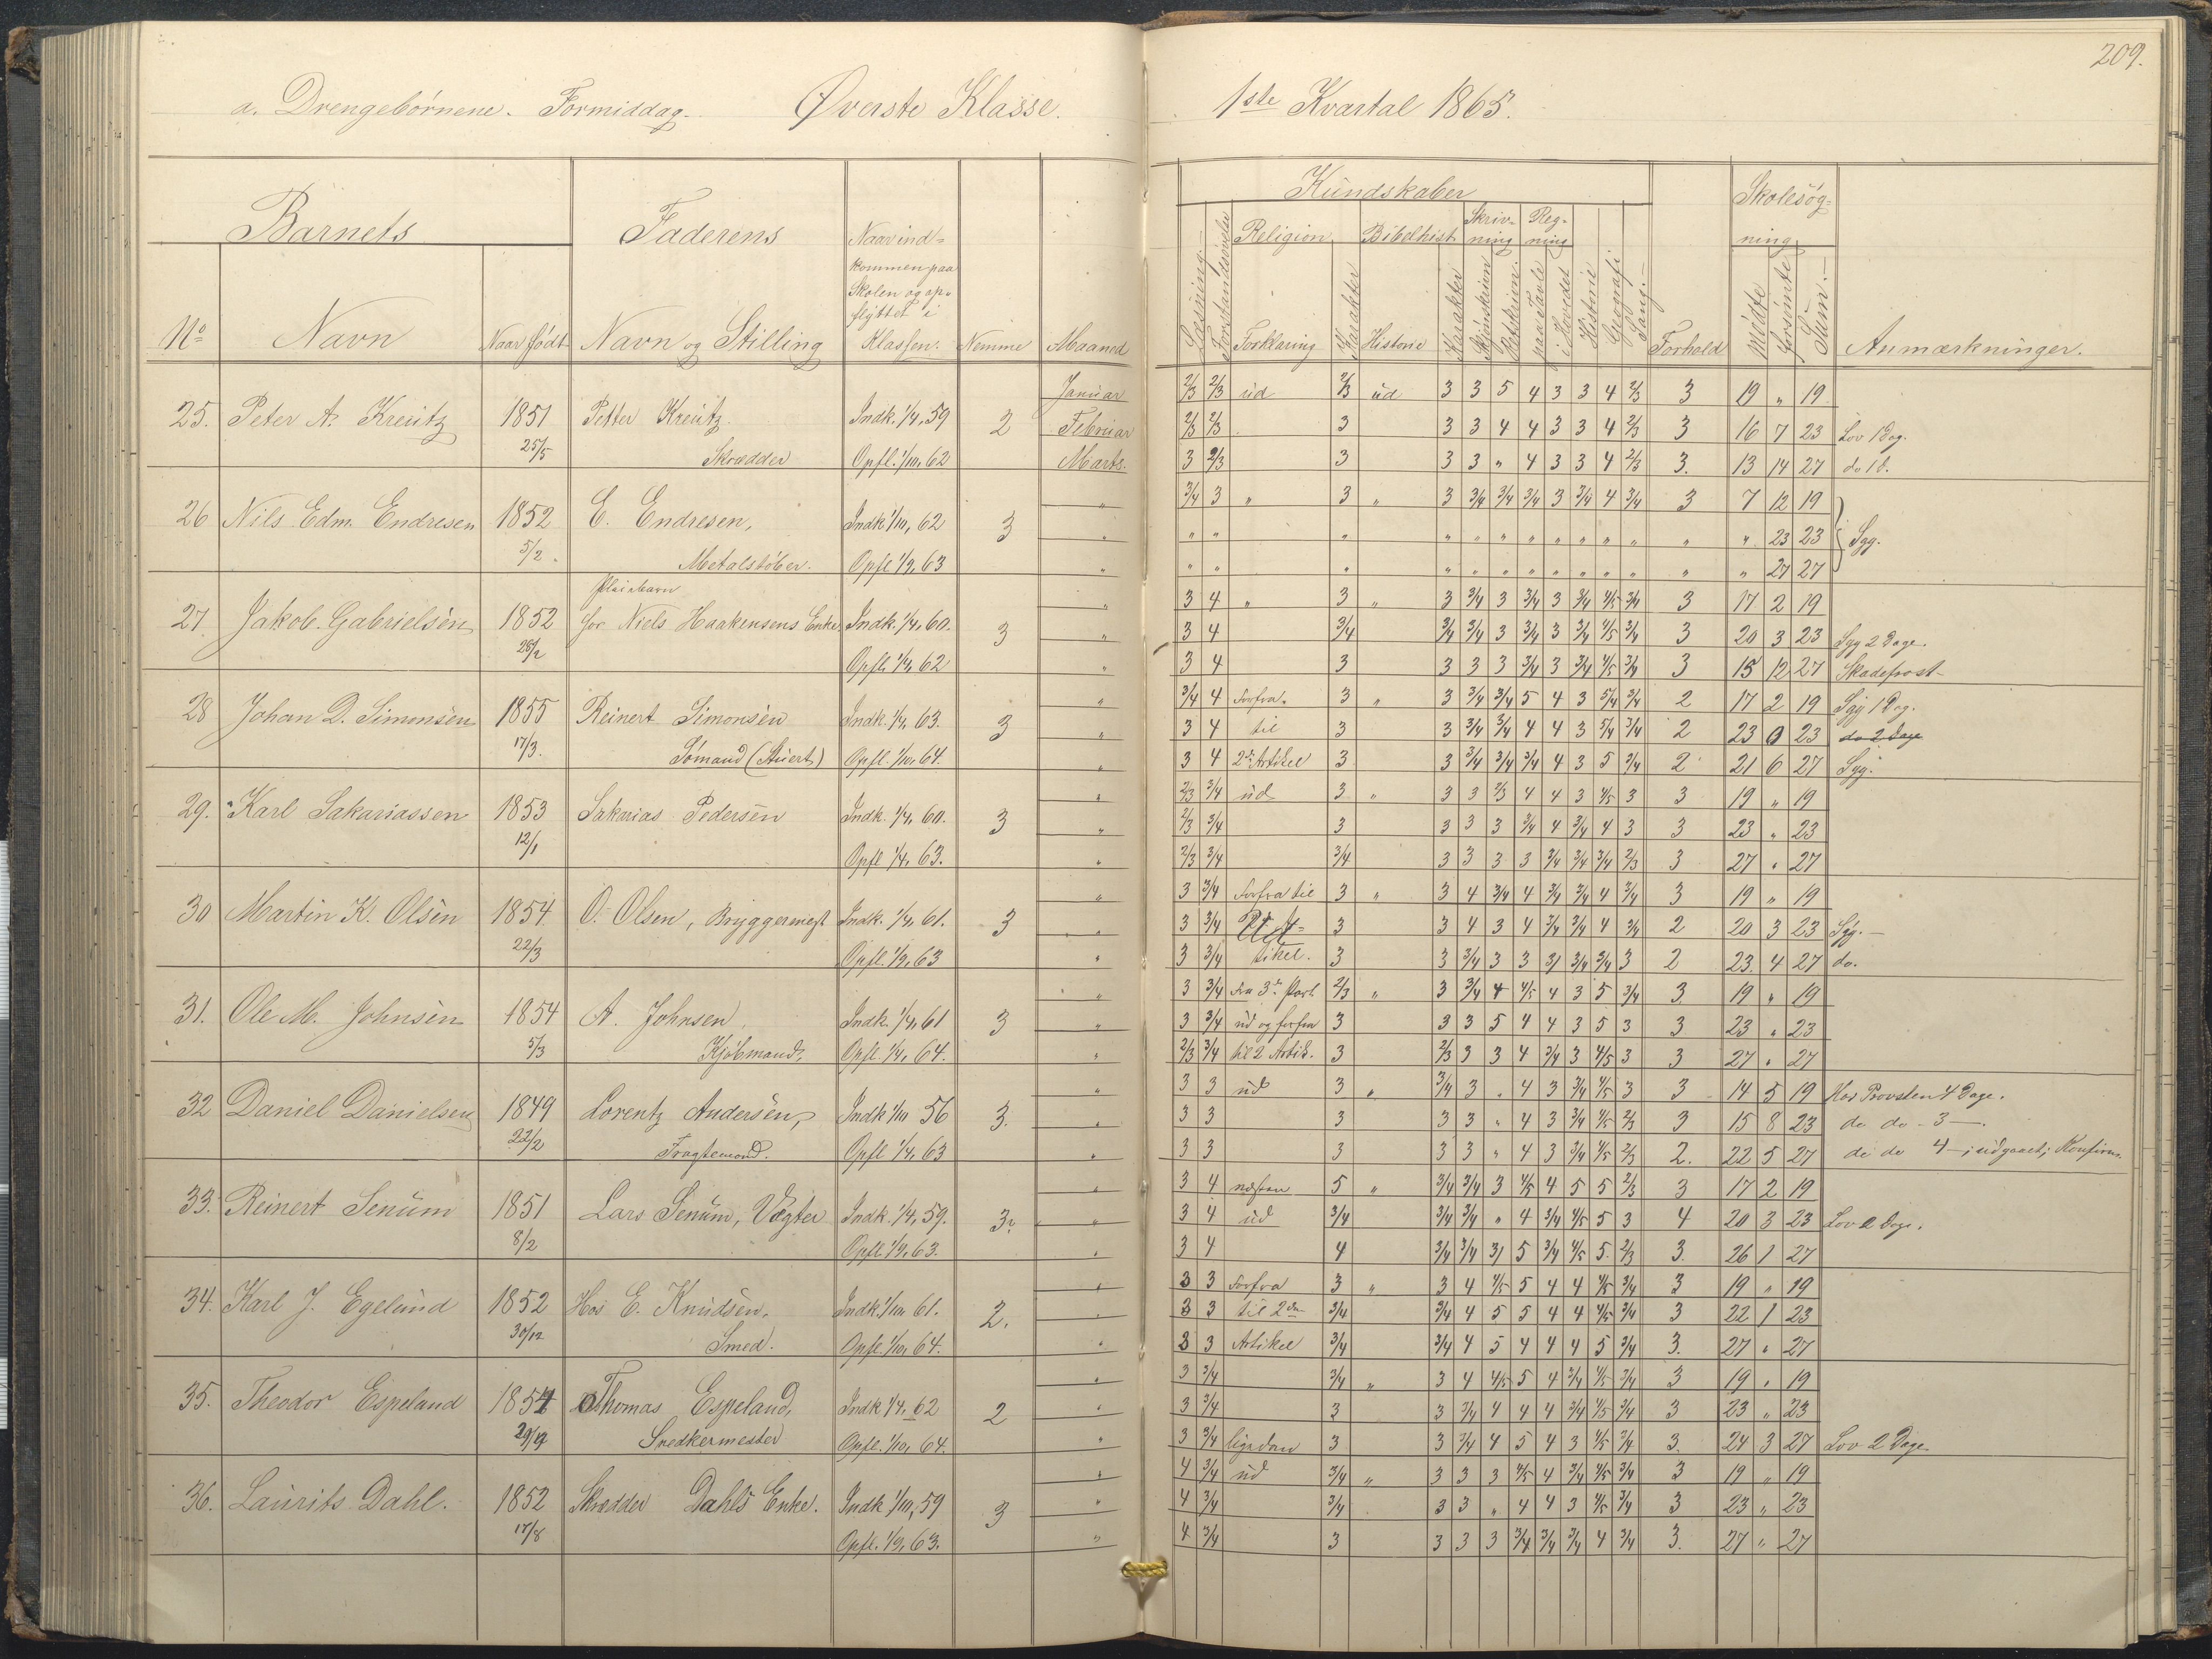 209.
a. Drengebørnene. Formiddag. Øverste Klasse. 1ste Kvartal 1865.
Barnets Faderens Naar ind-kommen paa Skolen og op-flyttet i Klassen. Kundskaber Skolesøg-ning
No Navn Naar født Navn og Stilling Nemme Maaned Læsning Forstandsøvelse Religion Forklaring Karakter Bibelhist. Historie Karakter Skriv-ning Skjønskrivn. Retskrivn. Reg-ning paa Tavle i Hovedet Historie Geografi Sang. Forhold Mødte Forsømte Sum. Anmærkninger.
Januar 2/3 2/3 ud 2/3 ud 3 3 5 4 3 3 4 2/3 3 19 " 19
25. Peter A. Kreutz 1851 Petter Kreutz. Indk. 1/4, 59 2 Februar 2/3 2/3 3 3 3 4 4 3 3 4 2/3 3 16 7 23 Lov 1 Dag.
25/5 Skrædder Opfl. 1/10, 62 Marts. 3 2/3 3 3 3 " 4 3 3 4 2/3 3. 13 14 27 do 1 d.
" 3/4 3 " 3 " 3 3/4 3/4 3/4 3 3/4 4 3/4 3 7 12 19
26 Nils Edm. Endresen 1852 E. Endresen, Indk 1/10, 62 3 " " " " " " " " " " " " " " 23 23 Syg.
5/2. Metalstøber. Opfl 1/9, 63 " " " " " " " " " " " " " " 27 27
Pleiebarn " 3 4 " 3 " 3 3/4 3 3/4 3 3/4 4/5 3/4 3 17 2 19
27. Jakob Gabrielsen 1852 for Niels Haakensens Enke Indk. 1/4, 60. 3 " 3 4 3/4 3/4 3/4 3 3/4 3 3/4 4/5 3/4 3 20 3 23 Syg 2 Dage.
28/2 Opfl. 1/4, 62 " 3 4 3 3 3 3 3/4 3 3/4 4/5 3/4 3 15 12 27 Skadefrost
" 3/4 4 forfra. 3 " 3 3/4 3/4 5 4 3 5/4 3/4 2 17 2 19 Syg 1 Dag.
28 Johan D. Simonsen 1855 Reinert Simonsen Indk. 1/4, 63. 3 " 3 4 til 3 3 3/4 3/4 4 4 3 5/4 3/4 2 23 0 23 do 2 Dage
17/3. Sømand (Stuert) Opfl. 1/10, 64. " 3 4 2den Artikel 3 3 3/4 3/4 3/4 4 3 5 3/4 2 21 6 27 Syg.
" 2/3 3/4 ud 3 " 3 3 2/3 4 4 3 4/5 3 3 19 " 19
29. Karl Sakariassen 1853 Sakarias Pedersen Indk. 1/4, 60. 3 " 2/3 3/4 3 3 3 3 3/4 4 3/4 4 3 3 23 " 23
12/1 Opfl 1/4, 63. " 2/3 3/4 3/4 3 3 3 3 3/4 3/4 3/4 2/3 3 27 " 27
" 3 3/4 forfra til 3 " 3 4 3/4 4 3/4 3/4 4 3/4 3 19 " 19
30 Martin K. Olsen 1854 O. Olsen, Bryggermest Indk. 1/4, 61. 3 " 3 3/4 3 3 4 3 4 3/4 3/4 4 3/4 2 20 3 23 Syg.
22/3 Opfl. 1/9, 63 " 3 3/4 tikel. 3 3 3/4 3 3 3/ 3/4 3/4 3 2 23. 4 27 do.
" 3 3/4 fra 3die Part 2/3 " 3 3/4 4 4/5 4 3 5 3/4 3. 19 " 19
31. Ole M. Johnsen 1854 A. Johnsen, Indk. 1/4, 61 3 " 3 3/4 ud og forfra 3 3 3 5 4 4 3 5 3 3 23 " 23
5/3 Kjøbmand. Opfl. 1/4, 64. " 2/3 3/4 til 2 Artik. 3 2/3 3 3 4 3/4 3 4/5 3 3 27 " 27
" 3 3 ud 3 " 3/4 3 . 4 3 3/4 4/5 3 3 14 5 19 Hos Provsten 4 Dage.
32 Daniel Danielsen 1849 Lorentz Andersen, Indk 1/10 56 3. " 3 3 3 3 3 " 4 3 3/4 4/5 2/3 3 15 8 23 do do - 3 —.
22/2 Fragtemand. Opfl 1/4, 63 " 3 3 3 3 3 " 4 3 3/4 4/5 2/3 2. 22 5 27 do do 4 —; udgaaet; Konfirm.
" 3 4 næsten 5 " 3/4 3/4 3 4/5 4 5 5 2/3 3 17 2 19
33. Reinert Senum 1851 Lars Senum, Vægter Indk. 1/4, 59. 3. " 3 4 ud 3/4 3/4 3/4 " 4 3/4 4/5 5 3 4 20 3 23 Lov 2 Dage.
8/2 Opfl 1/9, 63. " 3 4 4 3/4 3/4 3/ 5 3/4 4/5 5. 2/3 3. 26 1 27
" 3 3 forfra 3 " 3 4 4/5 5 4 4 4/5 3/4 3 19 " 19
34. Karl J. Egelund 1852 Hos E. Knudsen. Indk. 1/10 61. 2. " 3 3 til 2den 3/4 3/4 4 5 5 4 4 4/5 3/4 3 22 1 23
30/12 Smed. Opfl. 1/10, 64. " 3 3 Artikel 3/4 3/4 4 5 4 4 4 5 3/4 3. 27 " 27
" 3 3/4 3/4 " 3 4 4/5 5 4 3/4 4/5 3/4 3 19 " 19
35. Theodor Espeland 1854 Thomas Espeland, Indk 1/4, 62 2 " 3 3/4 3 3 3/4 4 4 4 3/4 4/5 3/4 3 23 " 23
Snedkermester Opfl. 1/10, 64. " 3 3/4 ligedan 3 3 3/4 4 5 4 3 4/5 3/4 3. 24 3 27 Lov 2 Dage.
" 4 3/4 ud 3/4 " 3 3 3 4/5 4 3/4 4/5 3/4 3 19 " 19
36. Laurits Dahl. 1852 Skrædder Dahls Enke. Indk 1/10, 59 3 " 4 3/4 3/4 3 3 " 4 4 3 4/5 3/4 3 23 " 23
17/8 Opfl. 1/9, 63. " 4 3/4 3 3 3 3 3/4 3/4 3/4 4 3/4 3. 27 " 27